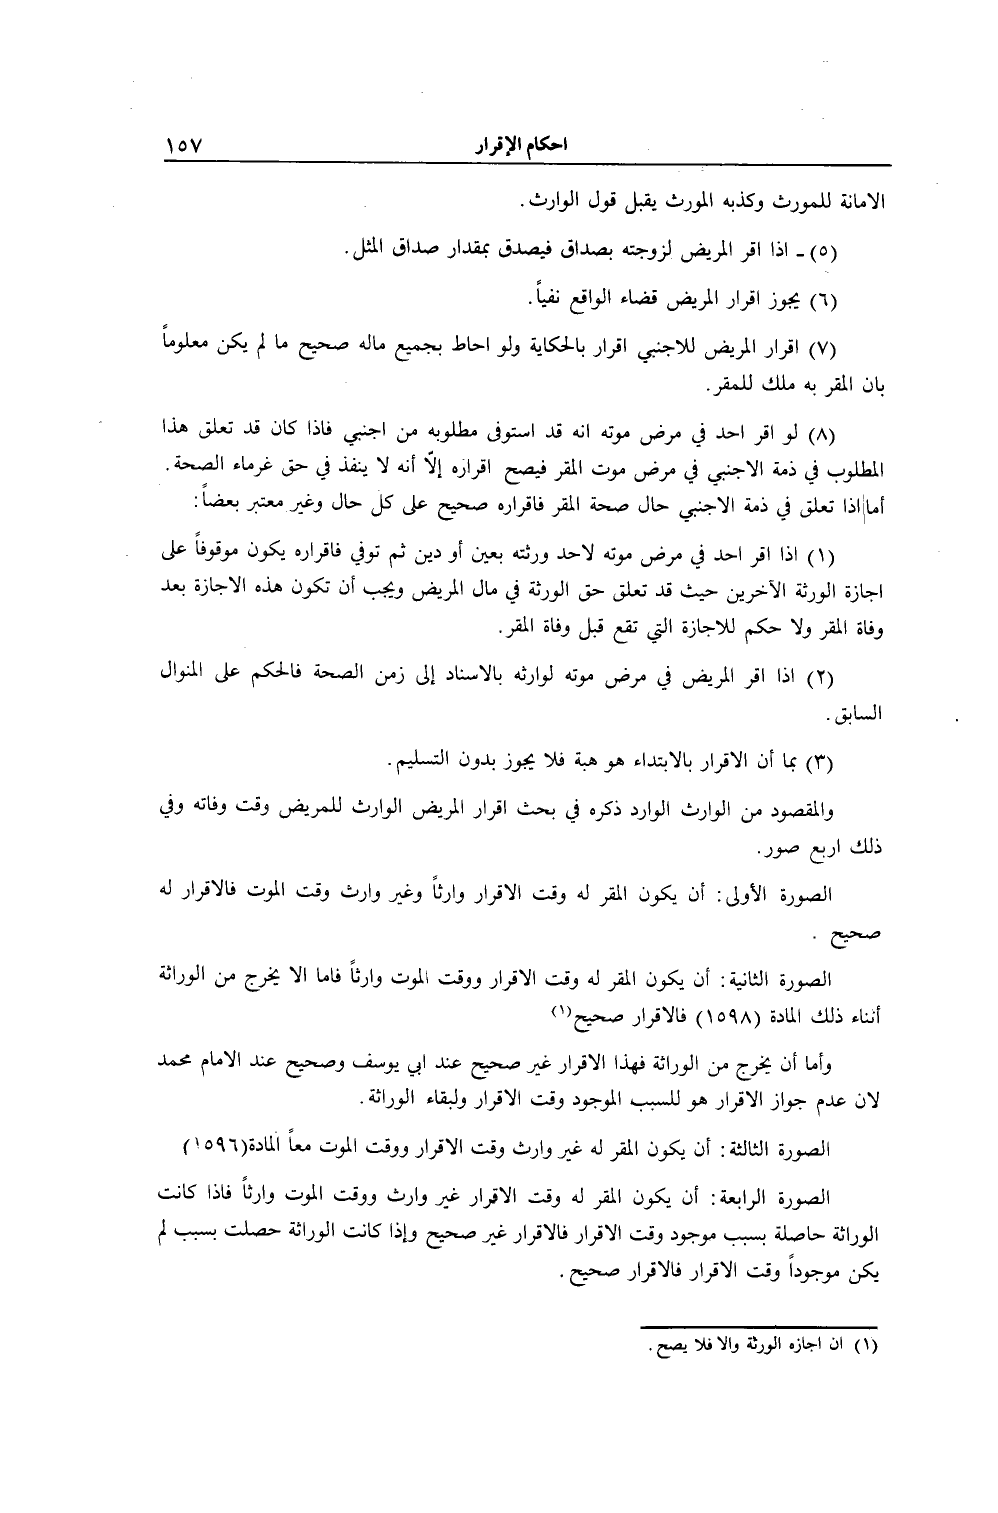 احكام الإقرار ١٥٧
الامانة للمورث وكذبه المورث يقبل قول الوارث.
(٥) ـ اذا اقر المريض لزوجته بصداق فيصدق بمقدار صداق المثل.
(٦) يجوز اقرار المريض قضاء الواقع نفياً.
(٧) اقرار المريض للاجنبي اقرار بالحكاية ولو احاط بجميع ماله صحيح ما لم يكن معلوماً
بان المقر به ملك للمقر.
(٨) لو اقر احد في مرض موته انه قد استوفى مطلوبه من اجنبي فاذا كان قد تعلق هذا
المطلوب في ذمة الاجنبي في مرض موت المقر فيصح اقراره إلّا أنه لا ينفذ في حق غرماء الصحة.
أما اذا تعلق في ذمة الاجنبي حال صحة المقر فاقراره صحيح على كل حال وغير معتبر بعضاً:
(١) اذا اقر احد في مرض موته لاحد ورثته بعين أو دين ثم توفي فاقراره يكون موقوفاً على
اجازة الورثة الآخرين حيث قد تعلق حق الورثة في مال المريض ويجب أن تكون هذه الاجازة بعد
وفاة المقر ولا حكم للاجازة التي تقع قبل وفاة المقر.
(٢) اذا اقر المريض في مرض موته لوارثه بالاسناد إلى زمن الصحة فالحكم على المنوال
السابق.
(٣) بما أن الاقرار بالابتداء هو هبة فلا يجوز بدون التسليم.
والمقصود من الوارث الوارد ذكره في بحث اقرار المريض الوارث للمريض وقت وفاته وفي
ذلك اربع صور.
الصورة الأولى: أن يكون المقر له وقت الاقرار وارثاً وغير وارث وقت الموت فالاقرار له
صحيح .
الصورة الثانية: أن يكون المقر له وقت الاقرار ووقت الموت وارثاً فاما الا يخرج من الوراثة
أنناء ذلك المادة (١٥٩٨) فالاقرار صحيح(١)
وأما أن يخرج من الوراثة فهذا الاقرار غير صحيح عند ابي يوسف وصحيح عند الامام محمد
لان عدم جواز الاقرار هو للسبب الموجود وقت الاقرار ولبقاء الوراثة.
الصورة الثالثة: أن يكون المقر له غير وارث وقت الاقرار ووقت الموت معاً المادة(١٥٩٦)
الصورة الرابعة: أن يكون المقر له وقت الاقرار غير وارث ووقت الموت وارثاً فاذا كانت
الوراثة حاصلة بسبب موجود وقت الاقرار فالاقرار غير صحيح وإذا كانت الوراثة حصلت بسبب لم
يكن موجوداً وقت الاقرار فالاقرار صحيح.
(١) ان اجازه الورثة والا فلا يصح.